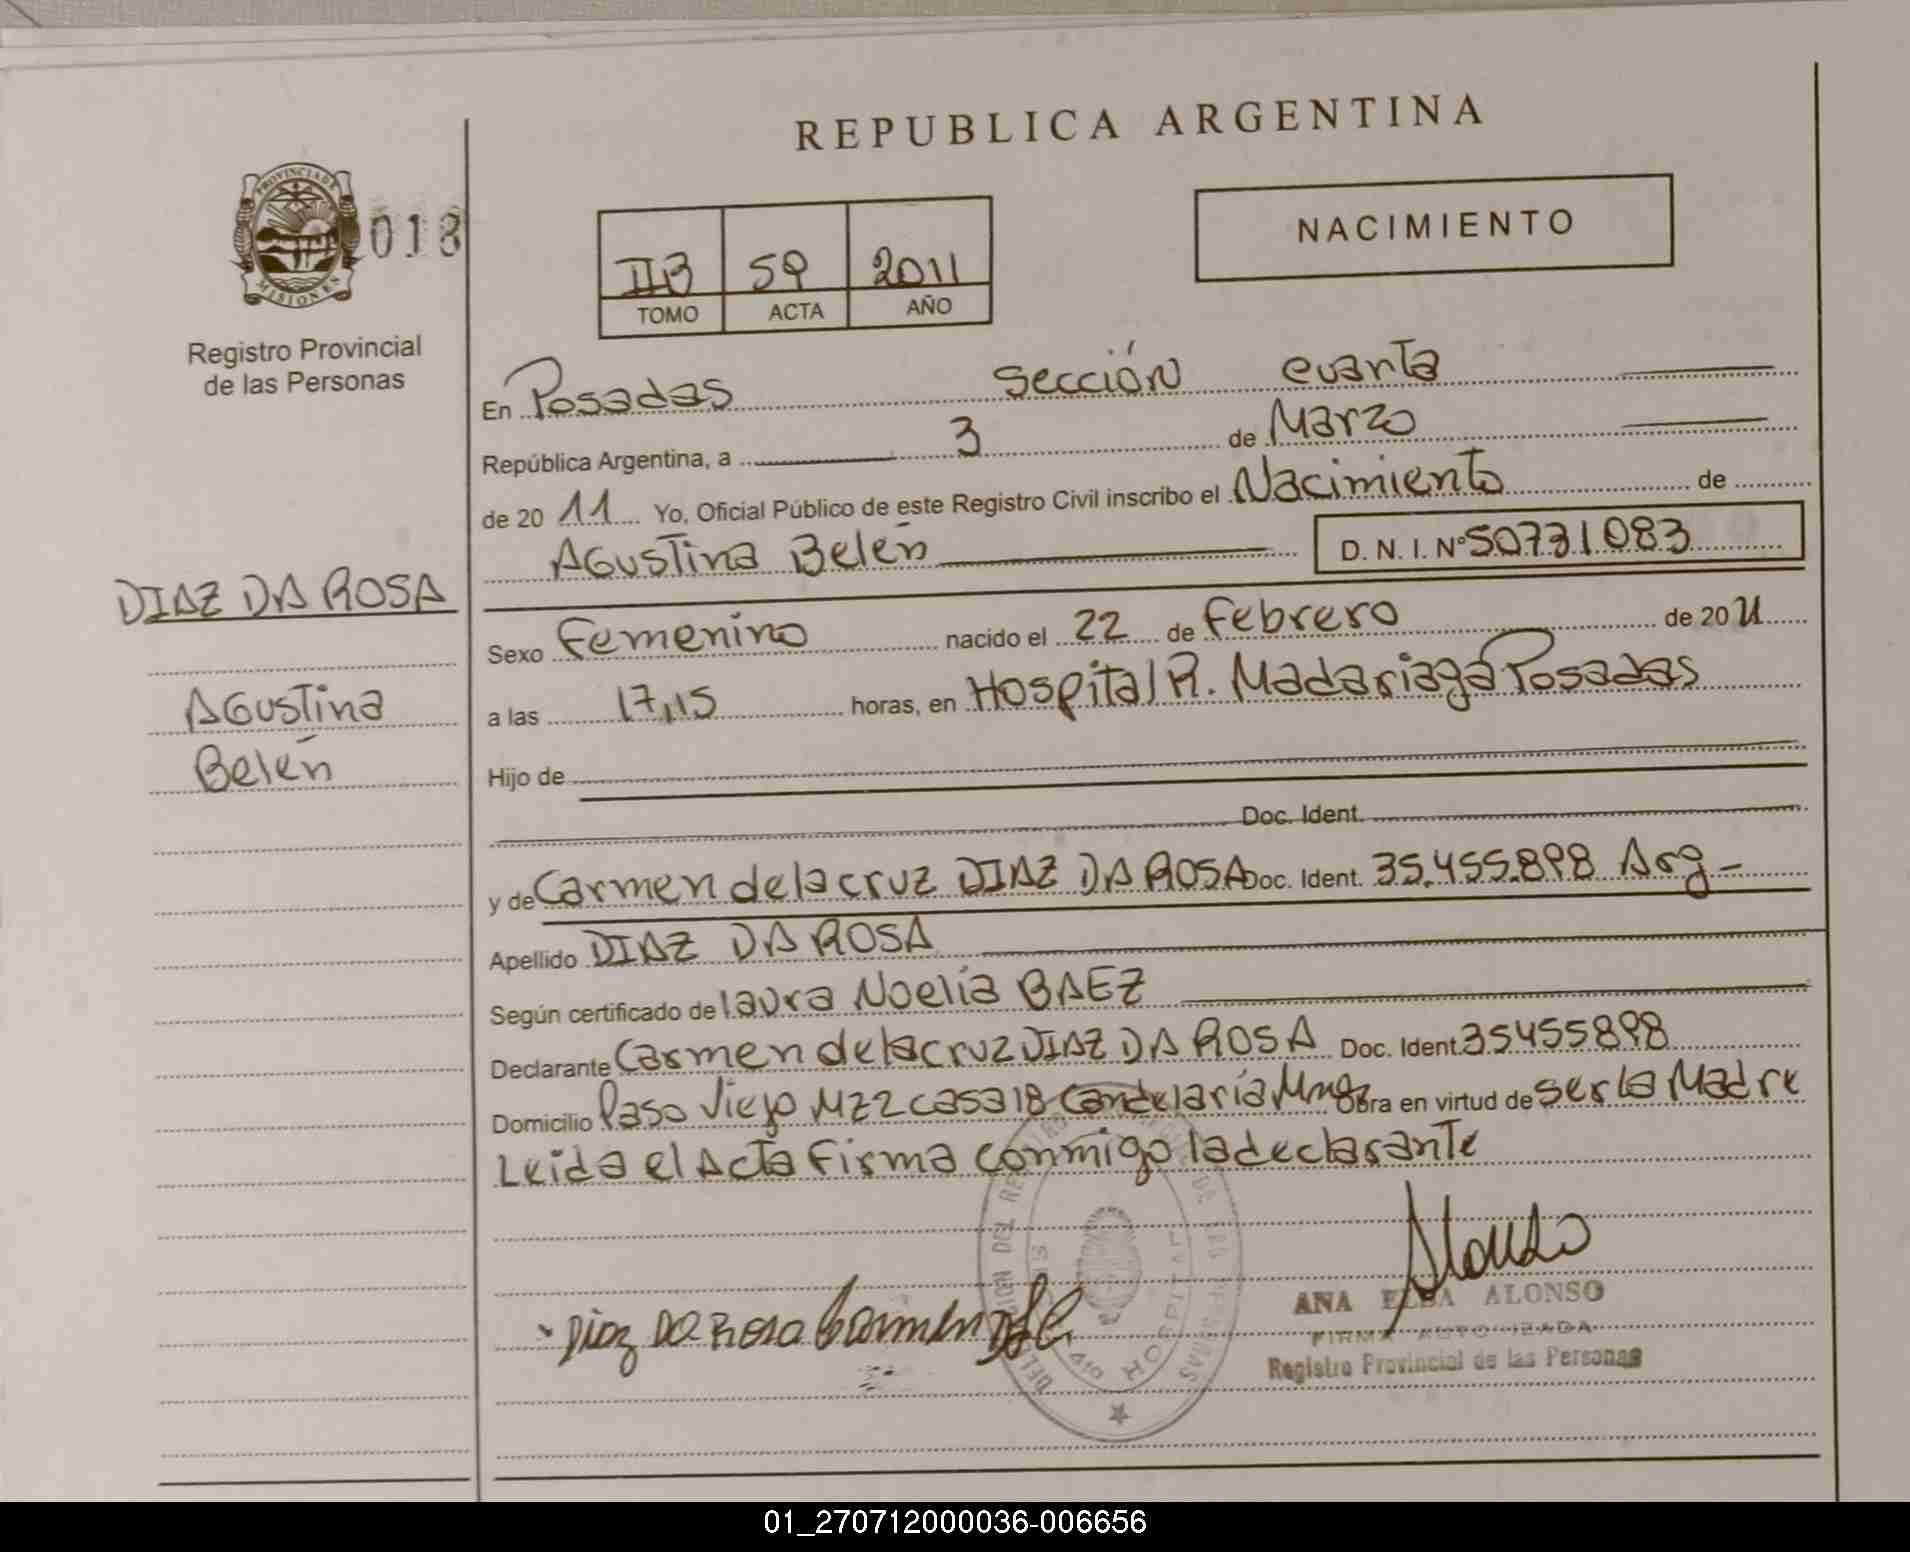 REPUBLICA ARGENTINA
PROVINCIA DE
MISIONES
018
Registro Provincial
de las Personas
NACIMIENTO
IIB 59 2011
TOMO ACTA AÑO
En Posadas Sección cuarta
República Argentina, a 3 de Marzo
de 20 11 Yo, Oficial Público de este Registro Civil inscribo el Nacimiento de
Agustina Belén D.N.I. Nº 50731083
DIAZ DA ROSA
Agustina
Belén
Sexo Femenino nacido el 22 de Febrero de 20 11
a las 17,15 horas, en Hospital R. Madariaga Posadas
Hijo de
Doc. Ident.
y de Carmen de la cruz DIAZ DA ROSA Doc. Ident. 35.455.898 Arg-
Apellido DIAZ DA ROSA
Según certificado de laura Noelia BAEZ
Declarante Carmen de la cruz DIAZ DA ROSA Doc. Ident. 35455898
Domicilio Paso Viejo Mz 2 casa 18 Candelaria Mnes Obra en virtud de ser la Madre
Leida el Acta Firma conmigo la declarante
Alonso
Diaz Da Rosa Carmen
ANA ELBA ALONSO
FIRMA AUTORIZADA
Registro Provincial de las Personas
HOSPITAL
01_270712000036-006656